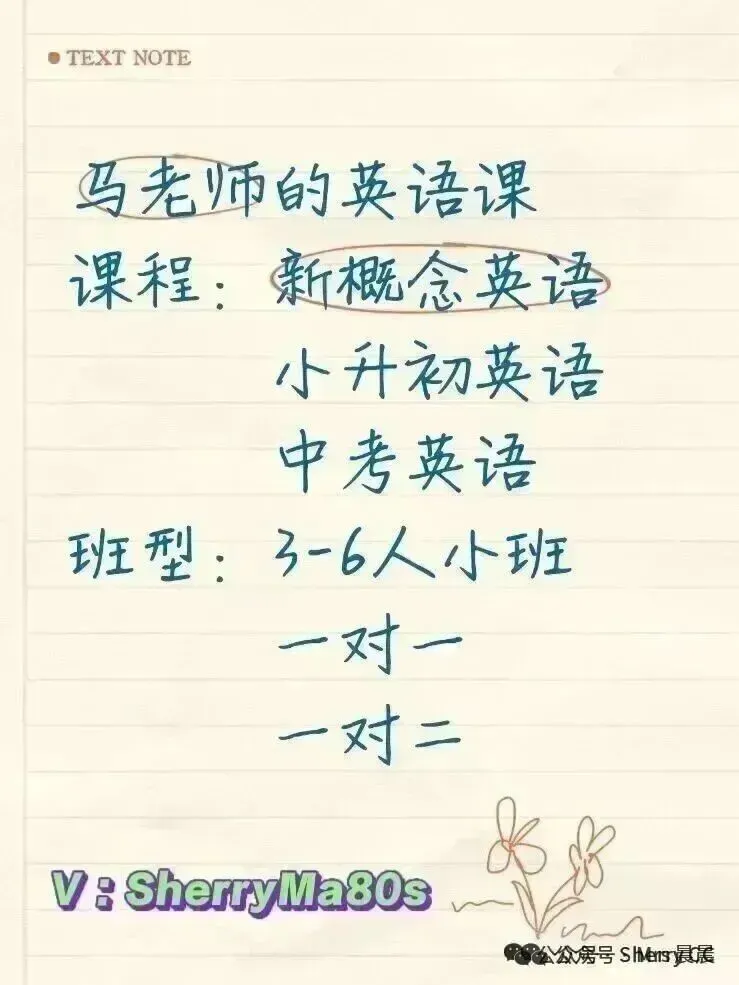 TEXT NOTE
马老师的英语课
课程：新概念英语
小升初英语
中考英语
班型：3-6人小班
一对一
一对二
V：SherryMa80s
公众号